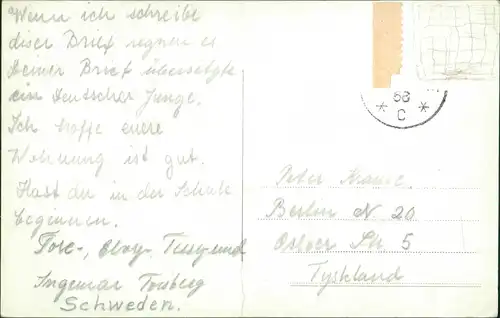 Wenn ich schreibe
diser Brief regnen es
Deiner Brief übersetzte
ein Deutscher Junge.
Ich hoffe euere
Wohnung ist gut.
Hast du in der Schule
beginnen.
Tore-,
Ingemar Forsberg
Schweden.
56
* C *
Peter Krause
Berlin N 20
Osloer Str 5
Tyskland